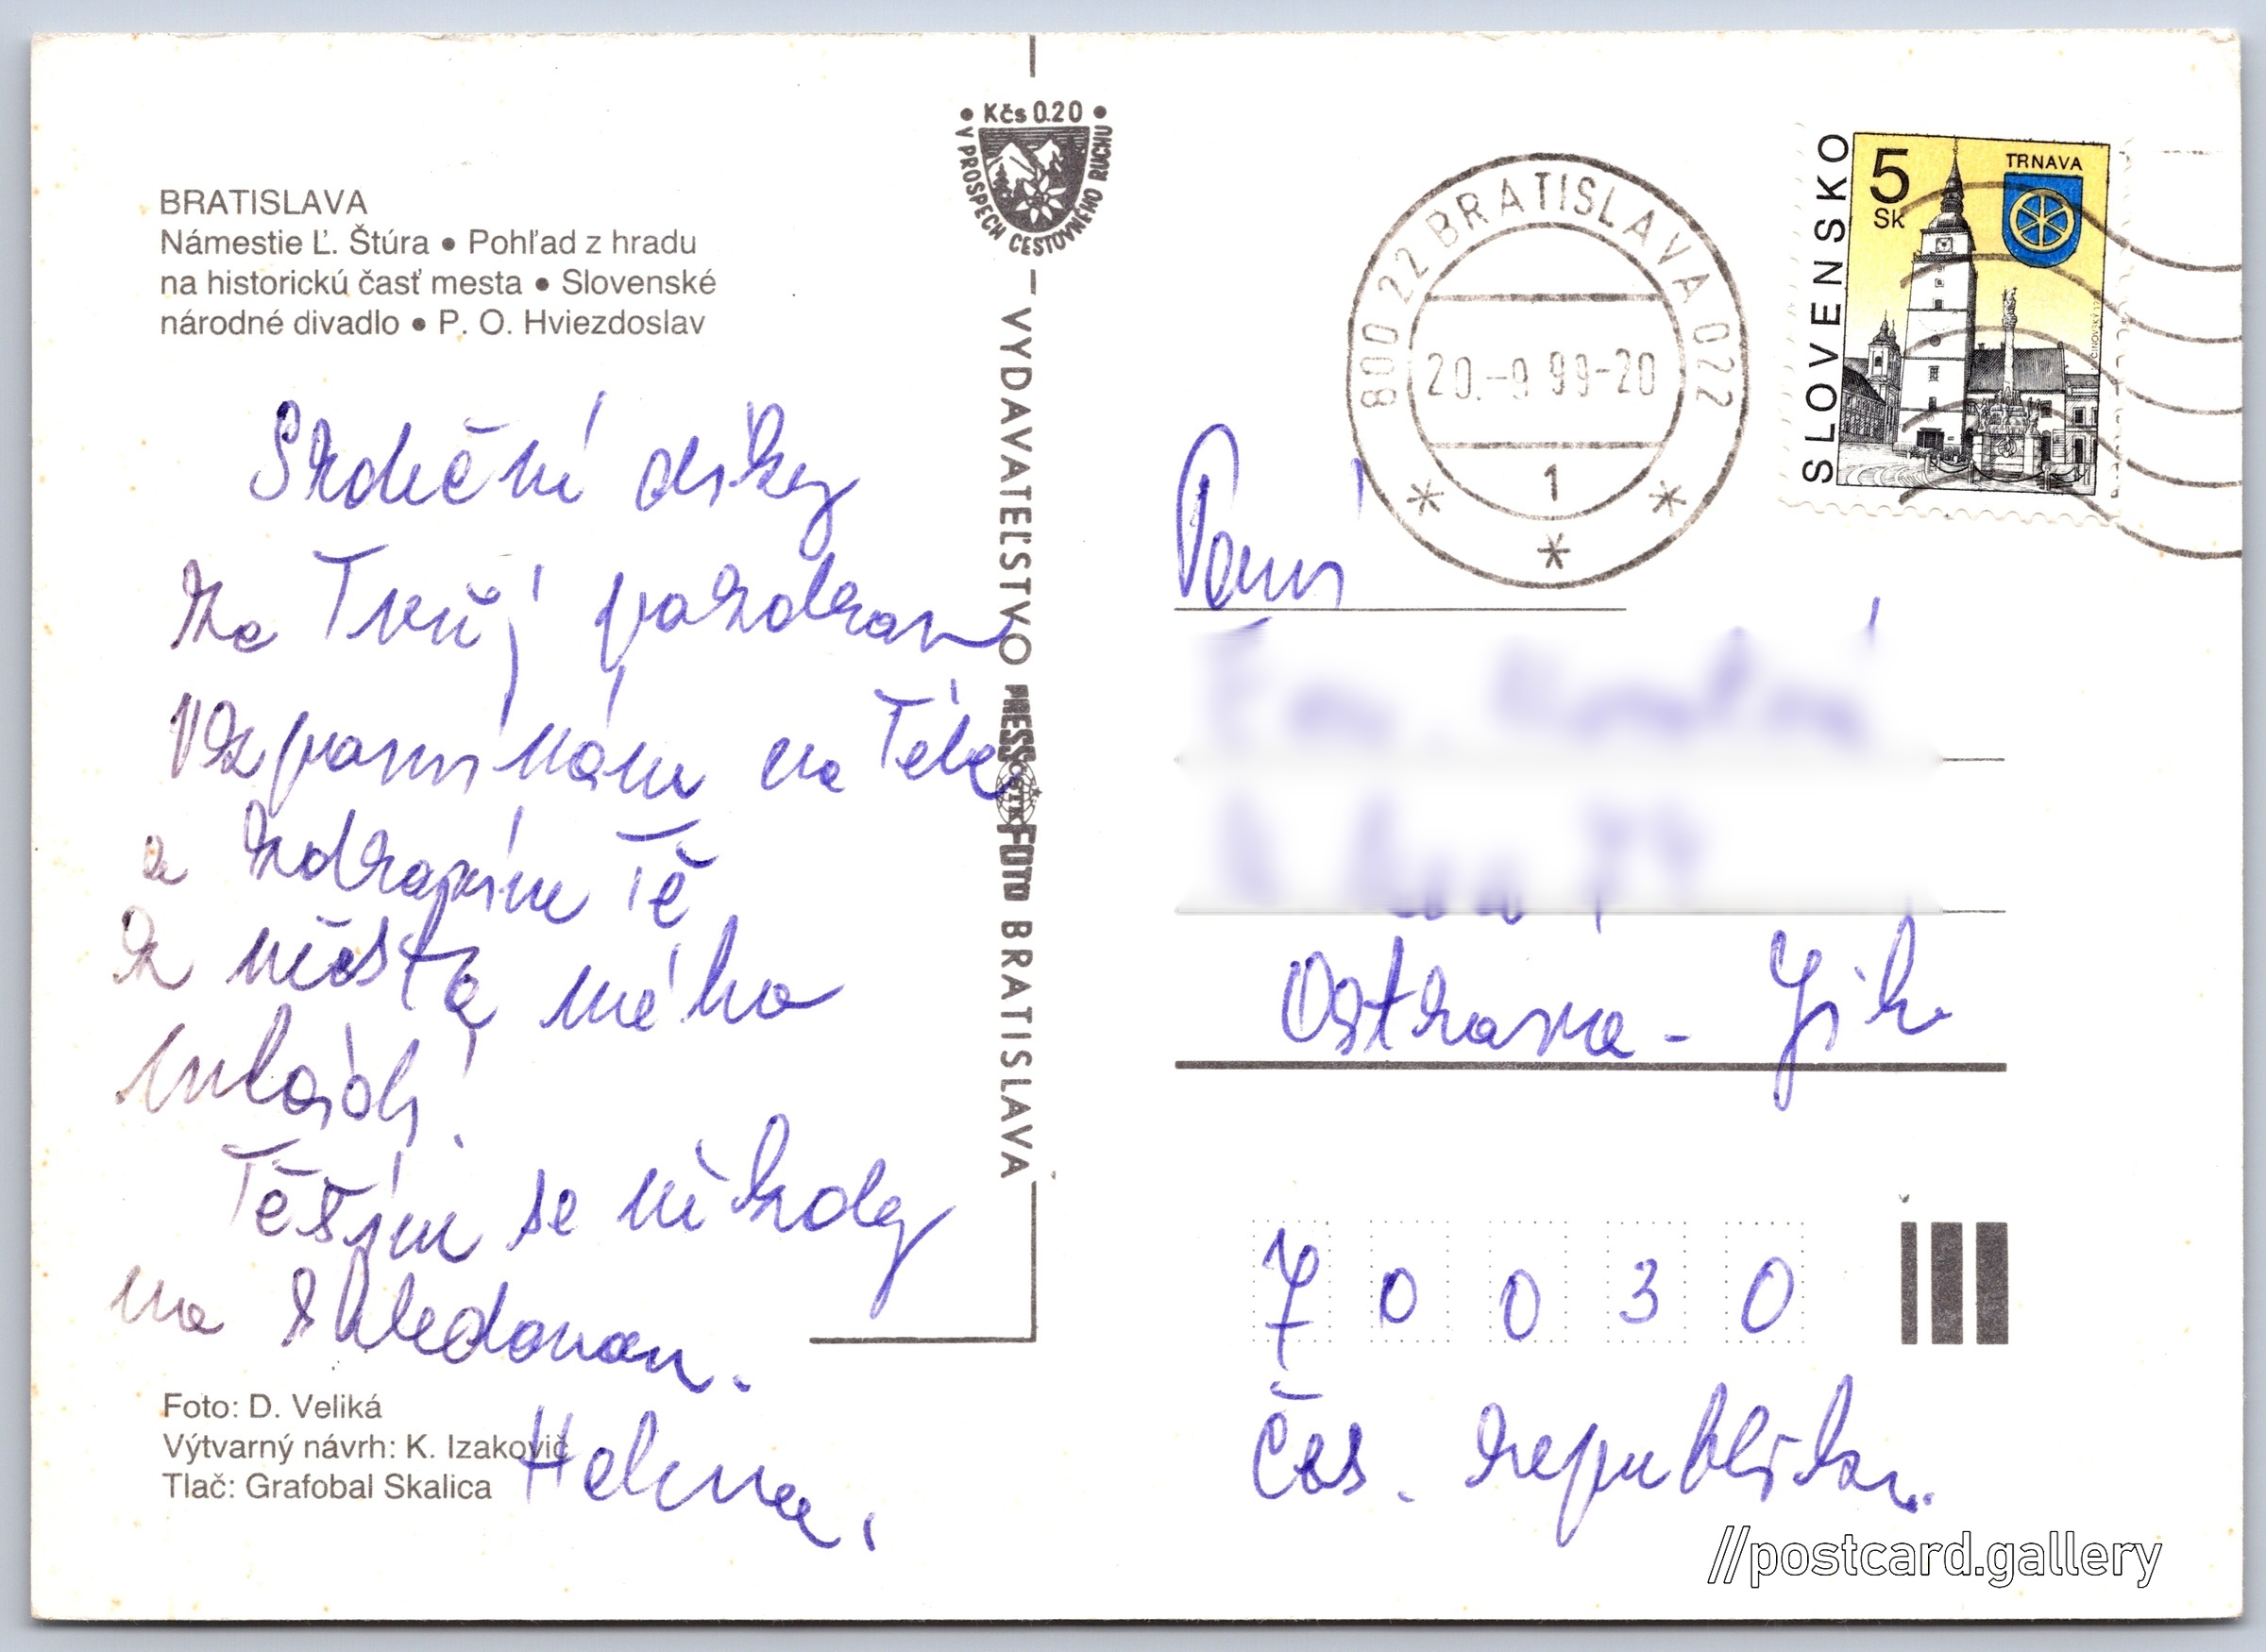 BRATISLAVA
Námestie Ľ. Štúra • Pohľad z hradu
na historickú časť mesta • Slovenské
národné divadlo • P. O. Hviezdoslav
Srdeční díky
za Tvůj pozdrav
Vzpomínám na Tebe
a zdravím Tě
z města mého
mládí.
Těším se někdy
na shledanou.
Helena.
Foto: D. Veliká
Výtvarný návrh: K. Izakovič
Tlač: Grafobal Skalica
• Kčs 0.20 •
V PROSPECH CESTOVNÉHO RUCHU
VYDAVATEĽSTVO PRESSFOTO BRATISLAVA
800 22 BRATISLAVA 022
20.-9 99-20
1
SLOVENSKO
5
Sk
TRNAVA
Paní
Ostrava - Jih
7 0 0 3 0
Čes. republika.
//postcard.gallery